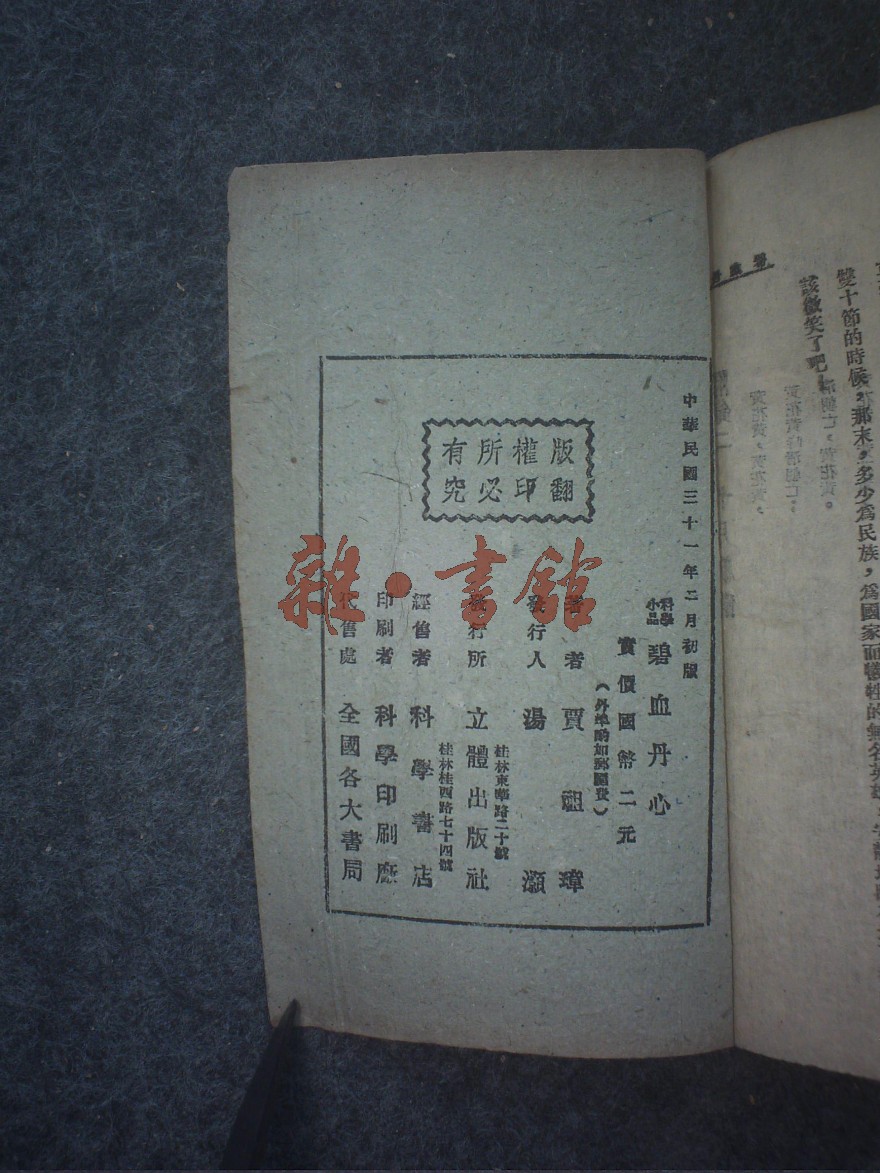 雙十節的時候，那末，多少爲民族，爲國家而犧牲的無名英雄
該微笑了吧！
中華民國三十一年二月初版
科學小品 碧血丹心
實價國幣二元
（外埠酌加郵匯費）
著者 賈祖璋
發行人 湯灝
發行所 立體出版社
桂林東華路二十號
經售者 科學書店
桂林桂西路七十四號
印刷者 科學印刷廠
代售處 全國各大書局
版權所有
翻印必究
雜·書館